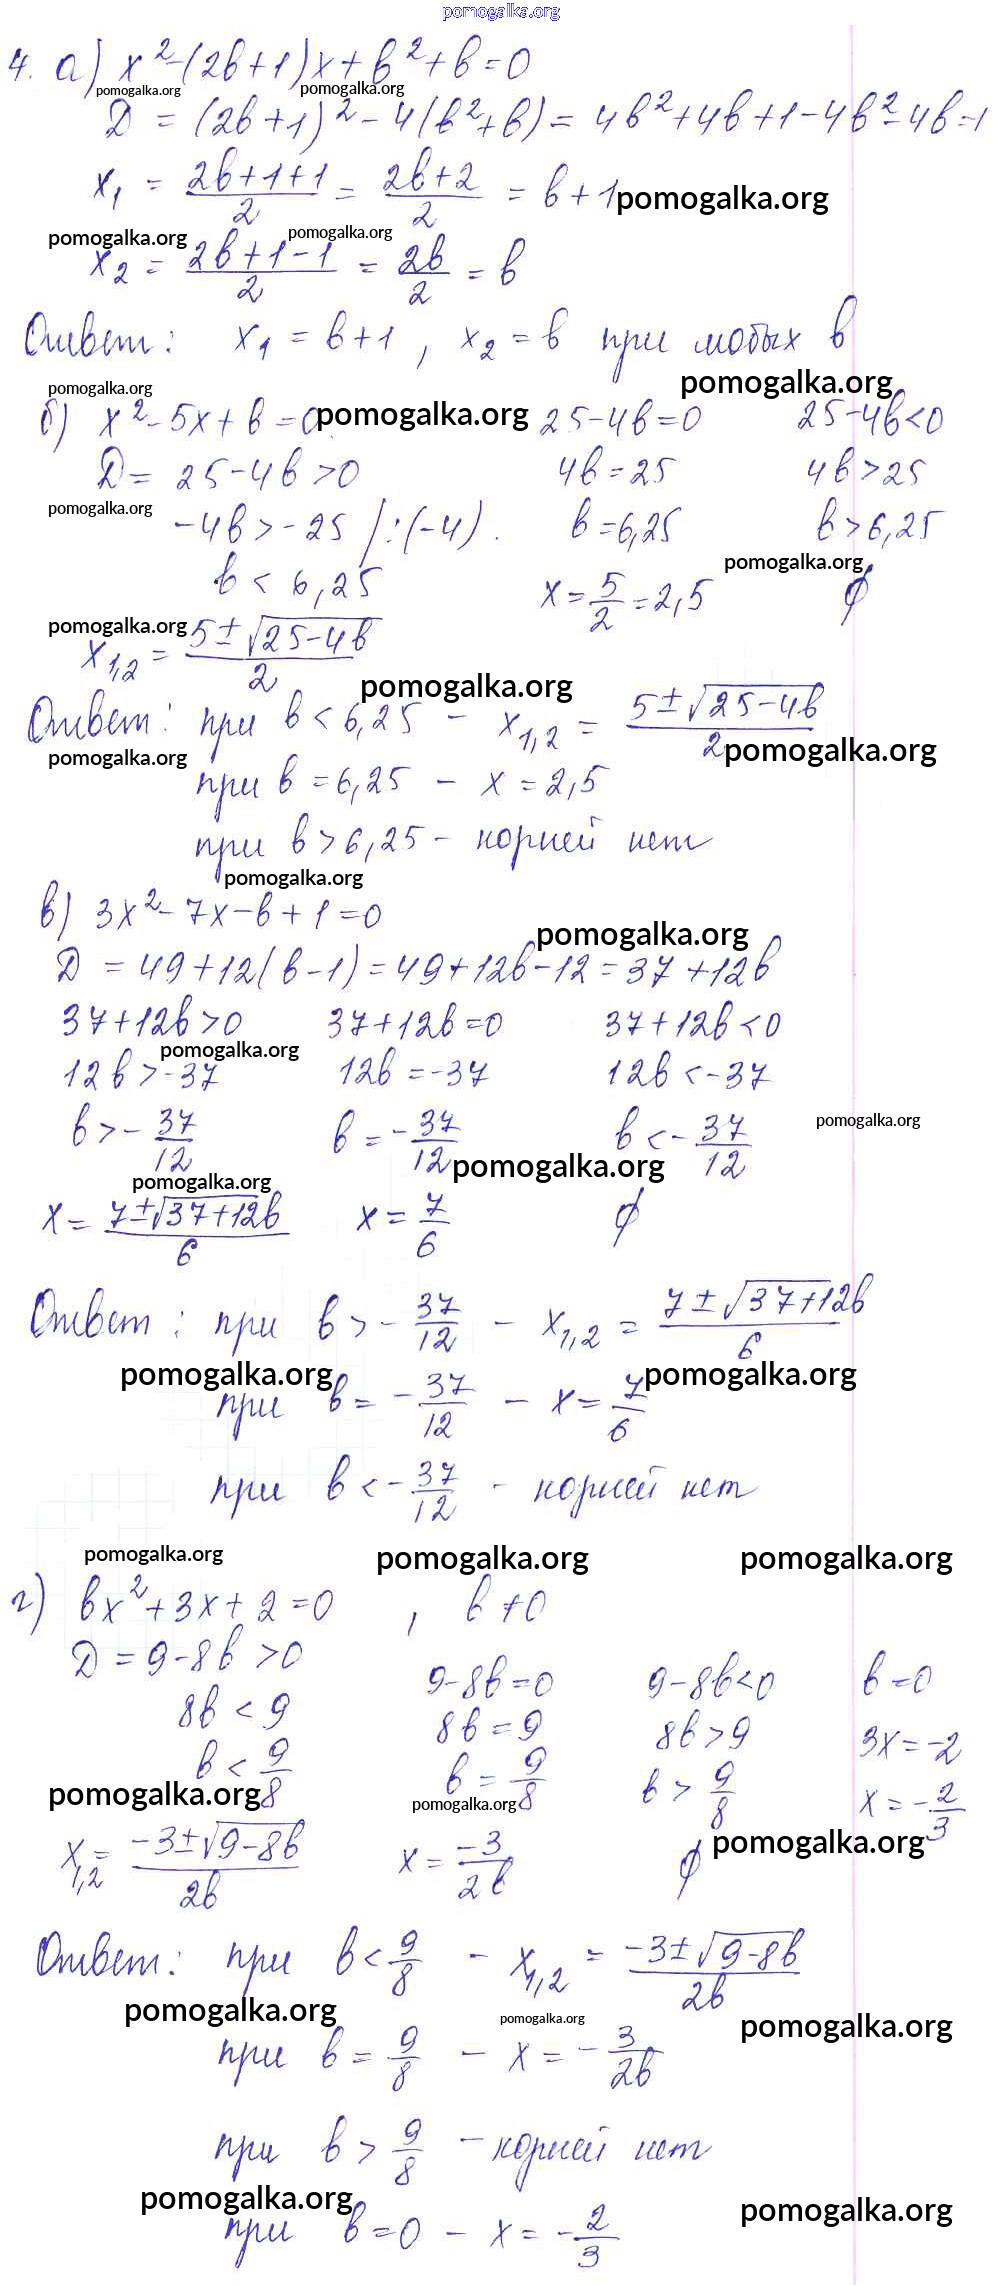 pomogalka.org
4. а) x² - (2в+1)x + в² + в = 0
pomogalka.org pomogalka.org
Д = (2в+1)² - 4(в²+в) = 4в²+4в+1-4в²-4в=1
x₁ = (2в+1+1)/2 = (2в+2)/2 = в+1 pomogalka.org
pomogalka.org pomogalka.org
x₂ = (2в+1-1)/2 = 2в/2 = в
Ответ: x₁ = в+1, x₂ = в при любых в
pomogalka.org pomogalka.org
б) x² - 5x + в = 0 pomogalka.org 25-4в=0 25-4в<0
Д = 25-4в>0 4в=25 4в>25
pomogalka.org
-4в > -25 |:(-4). в=6,25 в>6,25
pomogalka.org
в < 6,25 x = 5/2 = 2,5 ∅
pomogalka.org
x₁,₂ = (5±√25-4в)/2
pomogalka.org
Ответ: при в < 6,25 - x₁,₂ = (5±√25-4в)/2
pomogalka.org pomogalka.org
при в = 6,25 - x = 2,5
при в > 6,25 - корней нет
pomogalka.org
в) 3x² - 7x - в + 1 = 0
pomogalka.org
Д = 49+12(в-1) = 49+12в-12 = 37+12в
37+12в>0 37+12в=0 37+12в<0
pomogalka.org
12в>-37 12в=-37 12в<-37
в > -37/12 в = -37/12 в < -37/12 pomogalka.org
pomogalka.org pomogalka.org
x = (7±√37+12в)/6 x = 7/6 ∅
Ответ: при в > -37/12 - x₁,₂ = (7±√37+12в)/6
pomogalka.org pomogalka.org
при в = -37/12 - x = 7/6
при в < -37/12 - корней нет
pomogalka.org pomogalka.org pomogalka.org
г) вx² + 3x + 2 = 0, в≠0
Д = 9-8в>0 9-8в=0 9-8в<0 в=0
8в < 9 8в = 9 8в>9 3x=-2
в < 9/8 в = 9/8 в > 9/8 x = -2/3
pomogalka.org pomogalka.org pomogalka.org
x₁,₂ = (-3±√9-8в)/2в x = -3/2в ∅
Ответ: при в < 9/8 - x₁,₂ = (-3±√9-8в)/2в
pomogalka.org pomogalka.org pomogalka.org
при в = 9/8 - x = -3/2в
при в > 9/8 - корней нет
pomogalka.org pomogalka.org
при в = 0 - x = -2/3